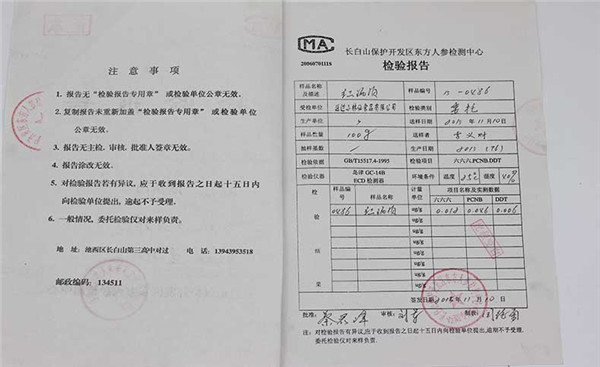 注意事项
1. 报告无"检验报告专用章"或检验单位公章无效。
2. 复制报告未重新加盖"检验报告专用章"或检验单位
公章无效。
3. 报告无主检、审核、批准人签章无效。
4. 报告涂改无效。
5. 对检验报告若有异议,应于收到报告之日起十五日内
向检验单位提出,逾起不予受理。
6. 一般情况,委托检验仅对来样负责。
地址:池西区长白山第三高中对过 电话:13943953518
邮政编码:134511
CMA
2006070111S
长白山保护开发区东方人参检测中心
检验报告
样品名称及描述 样品编号 n-0486
受检单位 检验类别 委托
生产单位 送样日期 2015年11月10日
样品数量 100g 送样者
抽样基数 生产日期 2015
检验依据 GB/T15517.4-1995 检验项目 六六六.PCNB.DDT
检验仪器 岛津 GC-14B ECD 检测器 环境条件 温度 湿度
检验结果 样品编号 样品名称 计量单位 项目名称及实测数据
六六六 PCNB DDT
0486 ug/g 0.018 0.046 0.006
ug/g
ug/g
ug/g
ug/g
ug/g
ug/g
签发日期 2015年11月10日
批准: 审核: 制表:
注:对检验报告若有异议,应于收到报告之日起十五日内向检验单位提出,逾期不予受理,
委托检验仅对来样负责。